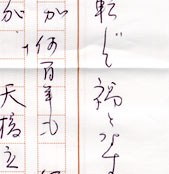 転じ福となす
が何百年も
が、天橋立